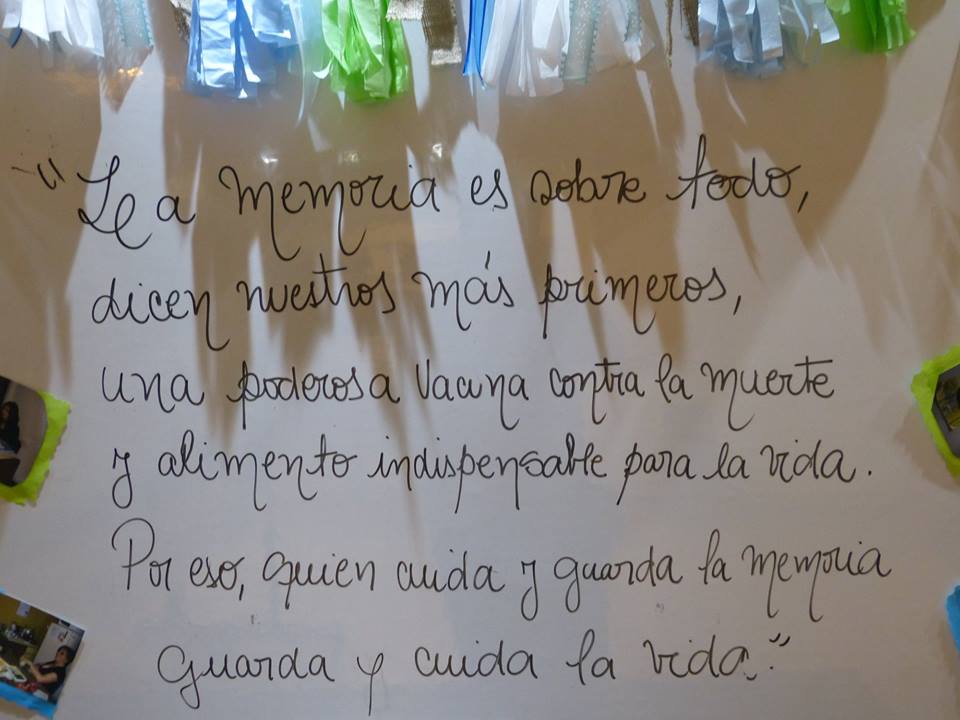 "La memoria es sobre todo,
dicen nuestros más primeros,
una poderosa vacuna contra la muerte
y alimento indispensable para la vida.
Por eso, quien cuida y guarda la memoria
guarda y cuida la vida."